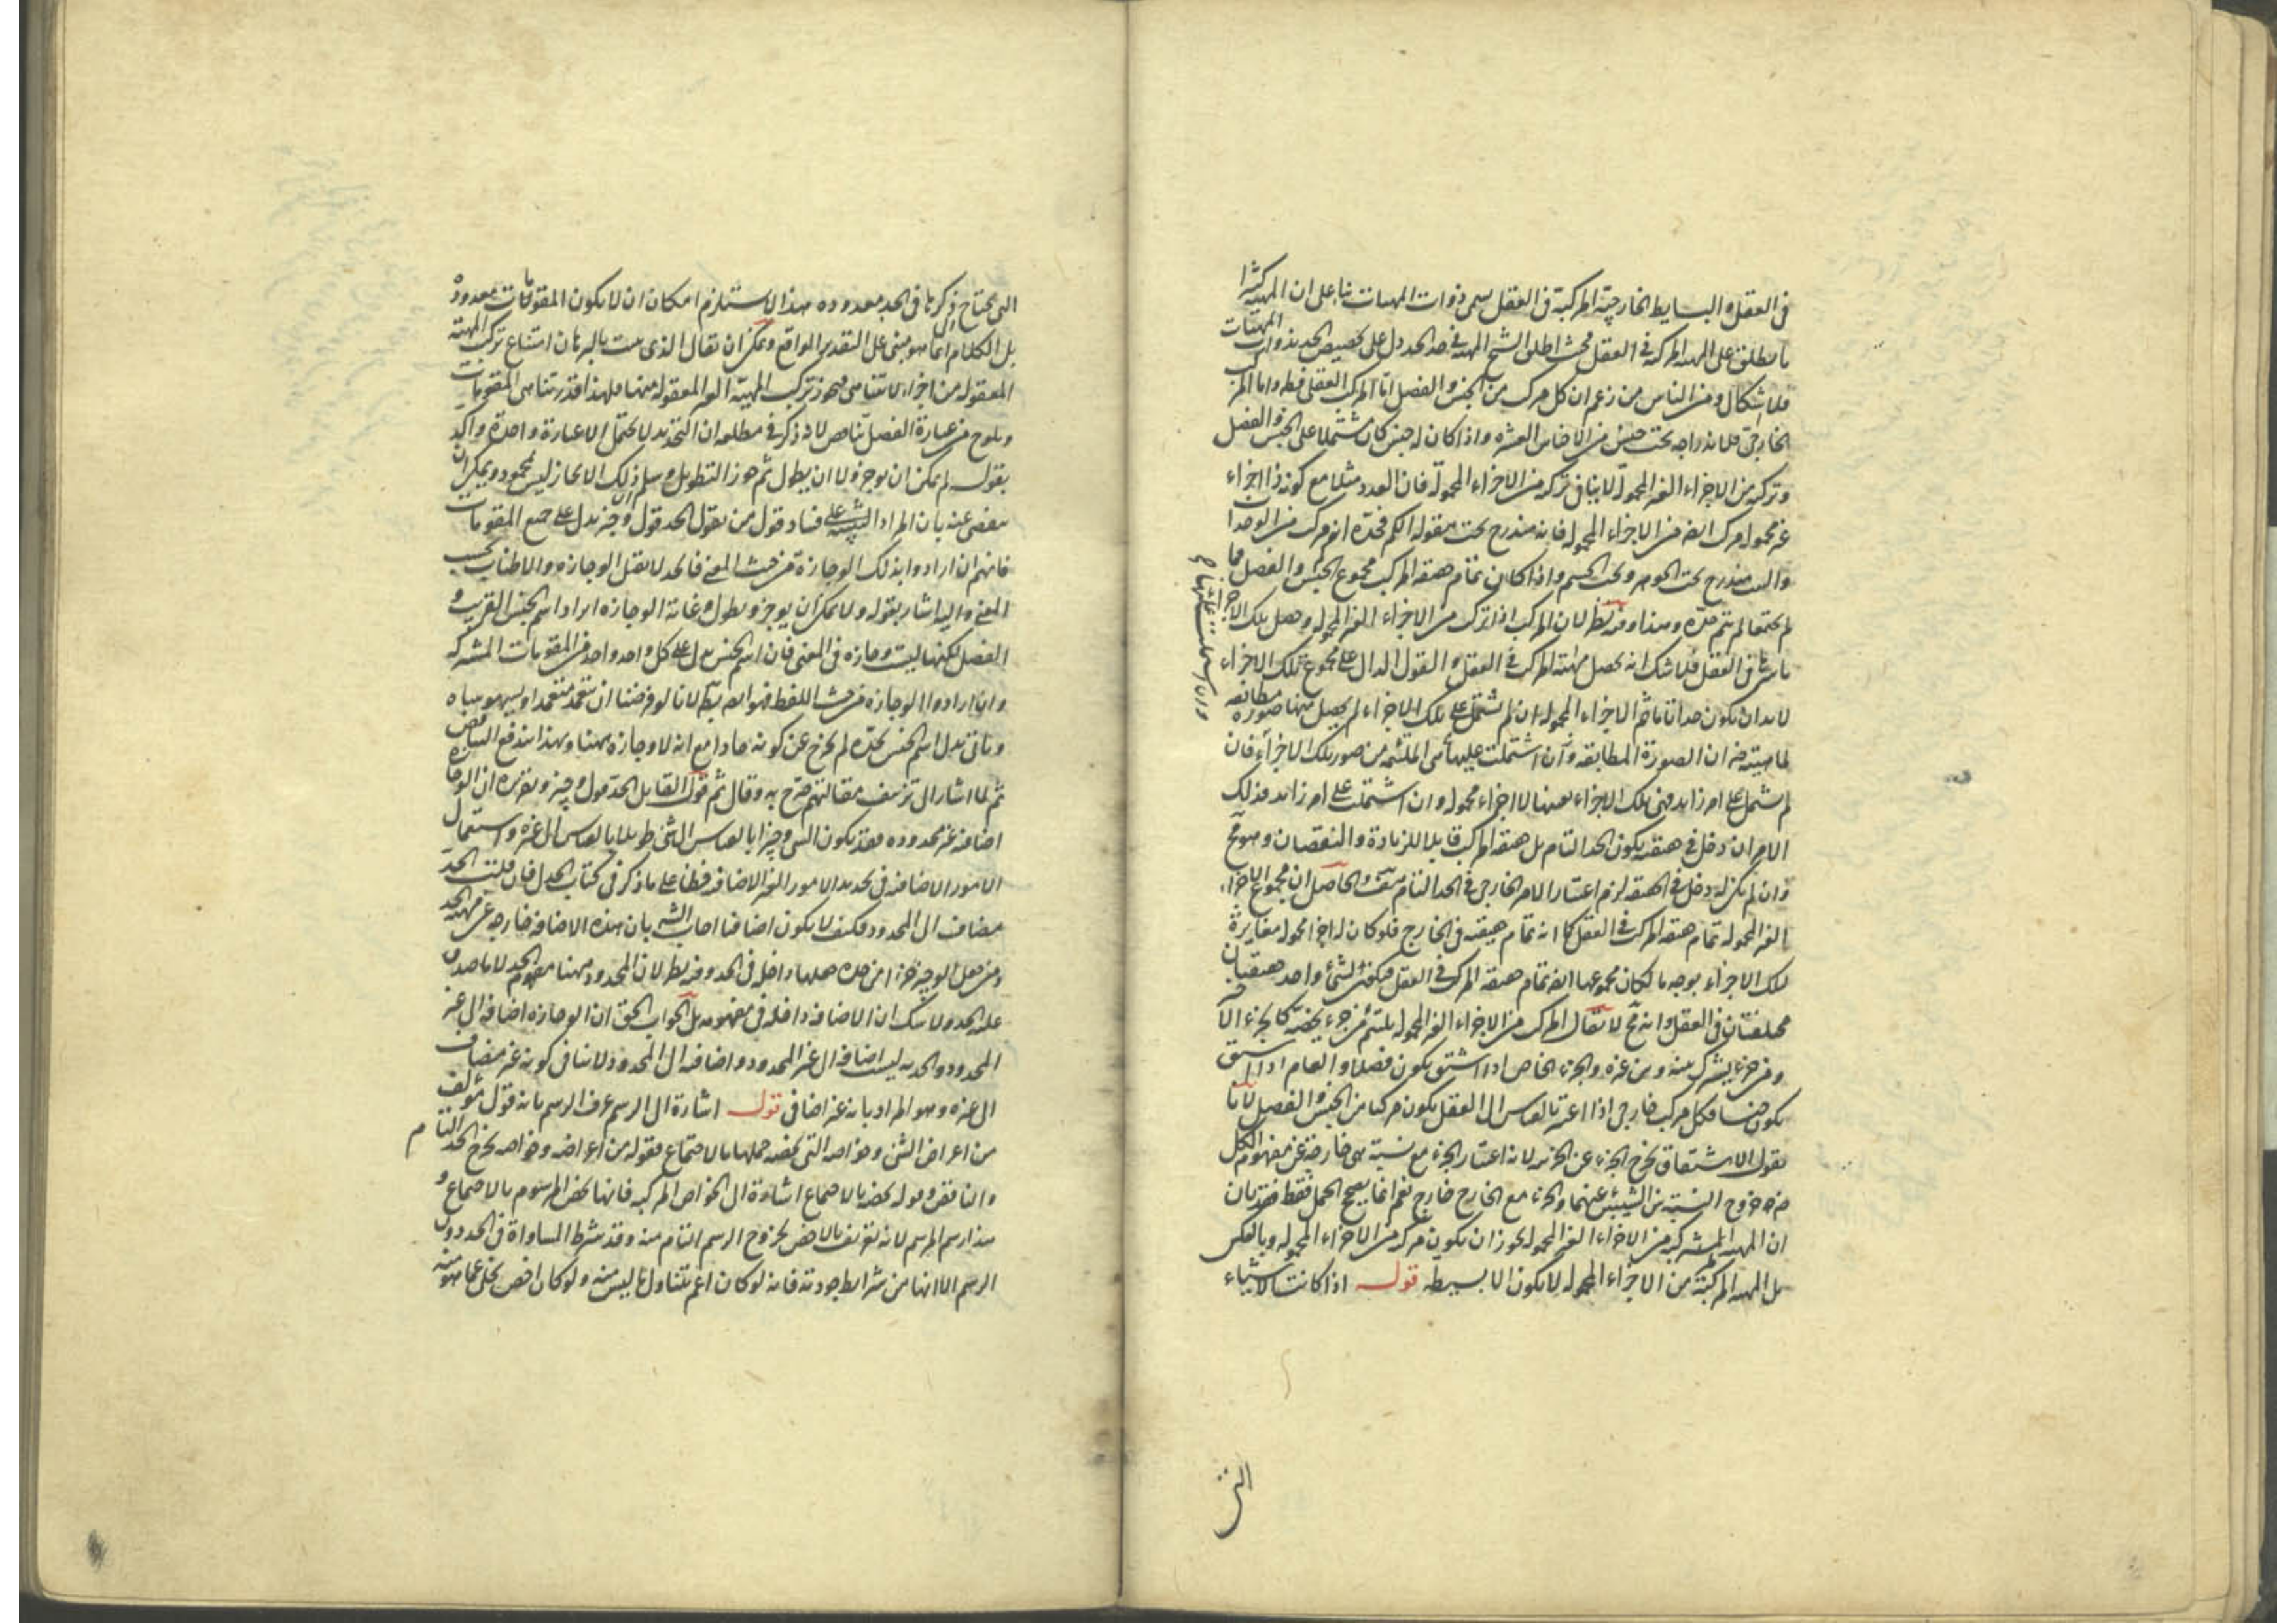 في العقل و البسايط الخارجية المركبة في العقل يسمى ذوات المهيات بناء على ان المهية كثيرا
ما يطلق على المهية المركبة في العقل فحيث اطلق الشيخ المهية في حد الحد دل على تخصيص الحد بذوات المهيات
فلا اشكال ومن الناس من زعم ان كل مركب من الجنس و الفصل اما المركب العقلي فظ واما المركب
الخارجي فلاندراجه تحت جنس من الاجناس العشرة واذا كان له جنس كان مشتملا على الجنس و الفصل
وتركبه من الاجزاء الغير المحمولة لا ينافي تركبه من الاجزاء المحمولة فان العدد مثلا مع كونه ذا اجزاء
غير محمولة مركب ايضا من الاجزاء المحمولة فانه مندرج تحت مقولة الكم فحده انه مركب من الوحدات
والبيت مندرج تحت الجوهر وتحت الجسم واذا كان تمام حقيقة المركب مجموع الجنس والفصل فما
لم يجتمعا لم يتم حده وهذا وفيه نظر لان المركب اذا تركب من الاجزاء الغير المحمولة وحصل تلك الاجزاء
باسرها في العقل فلا شك انه يحصل مهية المركب في العقل و القول الدال على مجموع تلك الاجزاء
لا بد ان يكون حدا تاما ثم الاجزاء المحمولة ان لم تشتمل على تلك الاجزاء لم يحصل منها صورة مطابقة
لماهيته ضرورة ان الصورة المطابقة وان اشتملت عليها هي الملتئمة من صور تلك الاجزاء فان
لم يشتمل على امر زايد فهي تلك الاجزاء بعينها لا اجزاء محمولة وان اشتملت على امر زايد فذلك
الامر ان دخل في حقيقته يكون الحد التام بل حقيقة المركب قابلا للزيادة و النقصان وهو مح
وان لم يكن له دخل في الحقيقة لزم اعتبار الامر الخارجي في الحد التام هف والحاصل ان مجموع الاجزاء
الغير المحمولة تمام حقيقة المركب في العقل كما انه تمام حقيقته في الخارج فلو كان له اجزاء محمولة مغايرة
لتلك الاجزاء بوجه ما لكان مجموعها ايضا تمام حقيقة المركب في العقل فيكون لشئ واحد حقيقتان
مختلفتان في العقل وانه مح لا يقال المركب من الاجزاء الغير المحمولة يلتئم من جزء يخصه كالجزء الاخير
ومن جزء يشترك بينه وبين غيره والجزء الخاص اذا اشتق يكون فصلا و العام اذا اشتق
يكون جنسا فكل مركب خارجي اذا اعتبر بالقياس الى العقل يكون مركبا من الجنس و الفصل لانا
نقول الاشتقاق يخرج الجزء عن الجزئية لانه اعتبار الجزء مع نسبة هي خارجة عن مفهوم الكل
ضرورة خروج النسبة بين الشيئين عنهما والجزء مع الخارج خارج نعم انما يصحح الحمل فقط فقد بان
ان المهية المركبة من الاجزاء الغير المحمولة يجوز ان يكون مركبة من الاجزاء المحمولة وبالعكس
بل المهية المركبة من الاجزاء المحمولة لا يكون الا بسيطة قوله اذا كانت الاشياء
التى
التي يحتاج ذكرها في الحد معدودة هذا لا يستلزم امكان ان لا يكون المقومات معدودة
بل الكلام انما هو مبني على التقدير الواقع ويمكن ان يقال الذي يثبت بالبرهان امتناع تركب المهية
المعقولة من اجزاء لا تتناهى فيجوز تركب المهية الغير المعقولة منها فلهذا قدر تناهي المقومات
ويلوح من عبارة الفصل تناقض لانه ذكر في مطلعه ان التحديد لا يحتمل الا عبارة واحدة واكد
بقوله لم يمكن ان يوجز ولا ان يطول ثم جوز التطويل وسلم ان ذلك الايجاز ليس بمحمود ويمكن ان
يتفصى عنه بان المراد التنبيه على فساد قول من يقول الحد قول وجيز يدل على جميع المقومات
فانهم ان ارادوا بذلك الوجازة من حيث المعنى فالحد لا يقبل الوجازة والاطناب بحسب
المعنى واليه اشار بقوله ولا يمكن ان يوجز و يطول وغاية الوجازة ايراد اسم الجنس القريب و
الفصل لكنها ليست وجازة في المعنى فان اسم الجنس يدل على كل واحد واحد من المقومات المشتركة
وان ارادوا الوجازة من حيث اللفظ فهو ايضا بط لانا لو فرضنا ان يتعمد متعمد او يسهو ساه
وياتي بدل اسم الجنس بحده لم يخرج عن كونه حادا مع انه لا وجازة ههنا وبهذا يندفع التناقض
ثم لما اشار الى تزييف مقالتهم صرح به وقال ثم قول القايل الحد قول وجيز وتقريره ان الوجازة
اضافية غير محدودة فقد يكون الشئ وجيزا بالقياس الى شئ طويلا بالقياس الى غيره واستعمال
الامور الاضافية في تحديد الامور الغير الاضافية خطأ على ما ذكر في كتاب الجدل فان قلت الحد
مضاف الى المحدود فكيف لا يكون اضافيا اجاب الشه بان هذه الاضافة خارجة عن مهية الحد
ومن جعل الوجيز جزءا من حده جعلها داخلة في الحد وفيه نظر لان المحدود ههنا مفهوم الحد لا ما صدق
عليه الحد ولا شك ان الاضافة داخلة في مفهومه بل الجواب الحق ان الوجازة اضافة الى غير
المحدود والحدية ليست اضافة الى غير المحدود و اضافته الى المحدود لا ينافي كونه غير مضاف
الى غيره وهو المراد بانه غير اضافي قوله اشارة الى الرسم عرف الرسم بانه قول مؤلف
من اعراض الشئ وخواصه التي يخصه جملتها بالاجتماع فقوله من اعراضه وخواصه يخرج الحد التام
والناقص وقوله يخصه بالاجتماع اشارة الى الخواص المركبة فانها يخص المرسوم بالاجتماع و
هذا رسم الرسم لانه تعريف بالاخص لخروج الرسم التام منه وقد شرط المساواة في الحد دون
الرسم الا انها من شرايط جودته فانه لو كان اعم يتناول ما ليس منه ولو كان اخص يخل عما هو منه